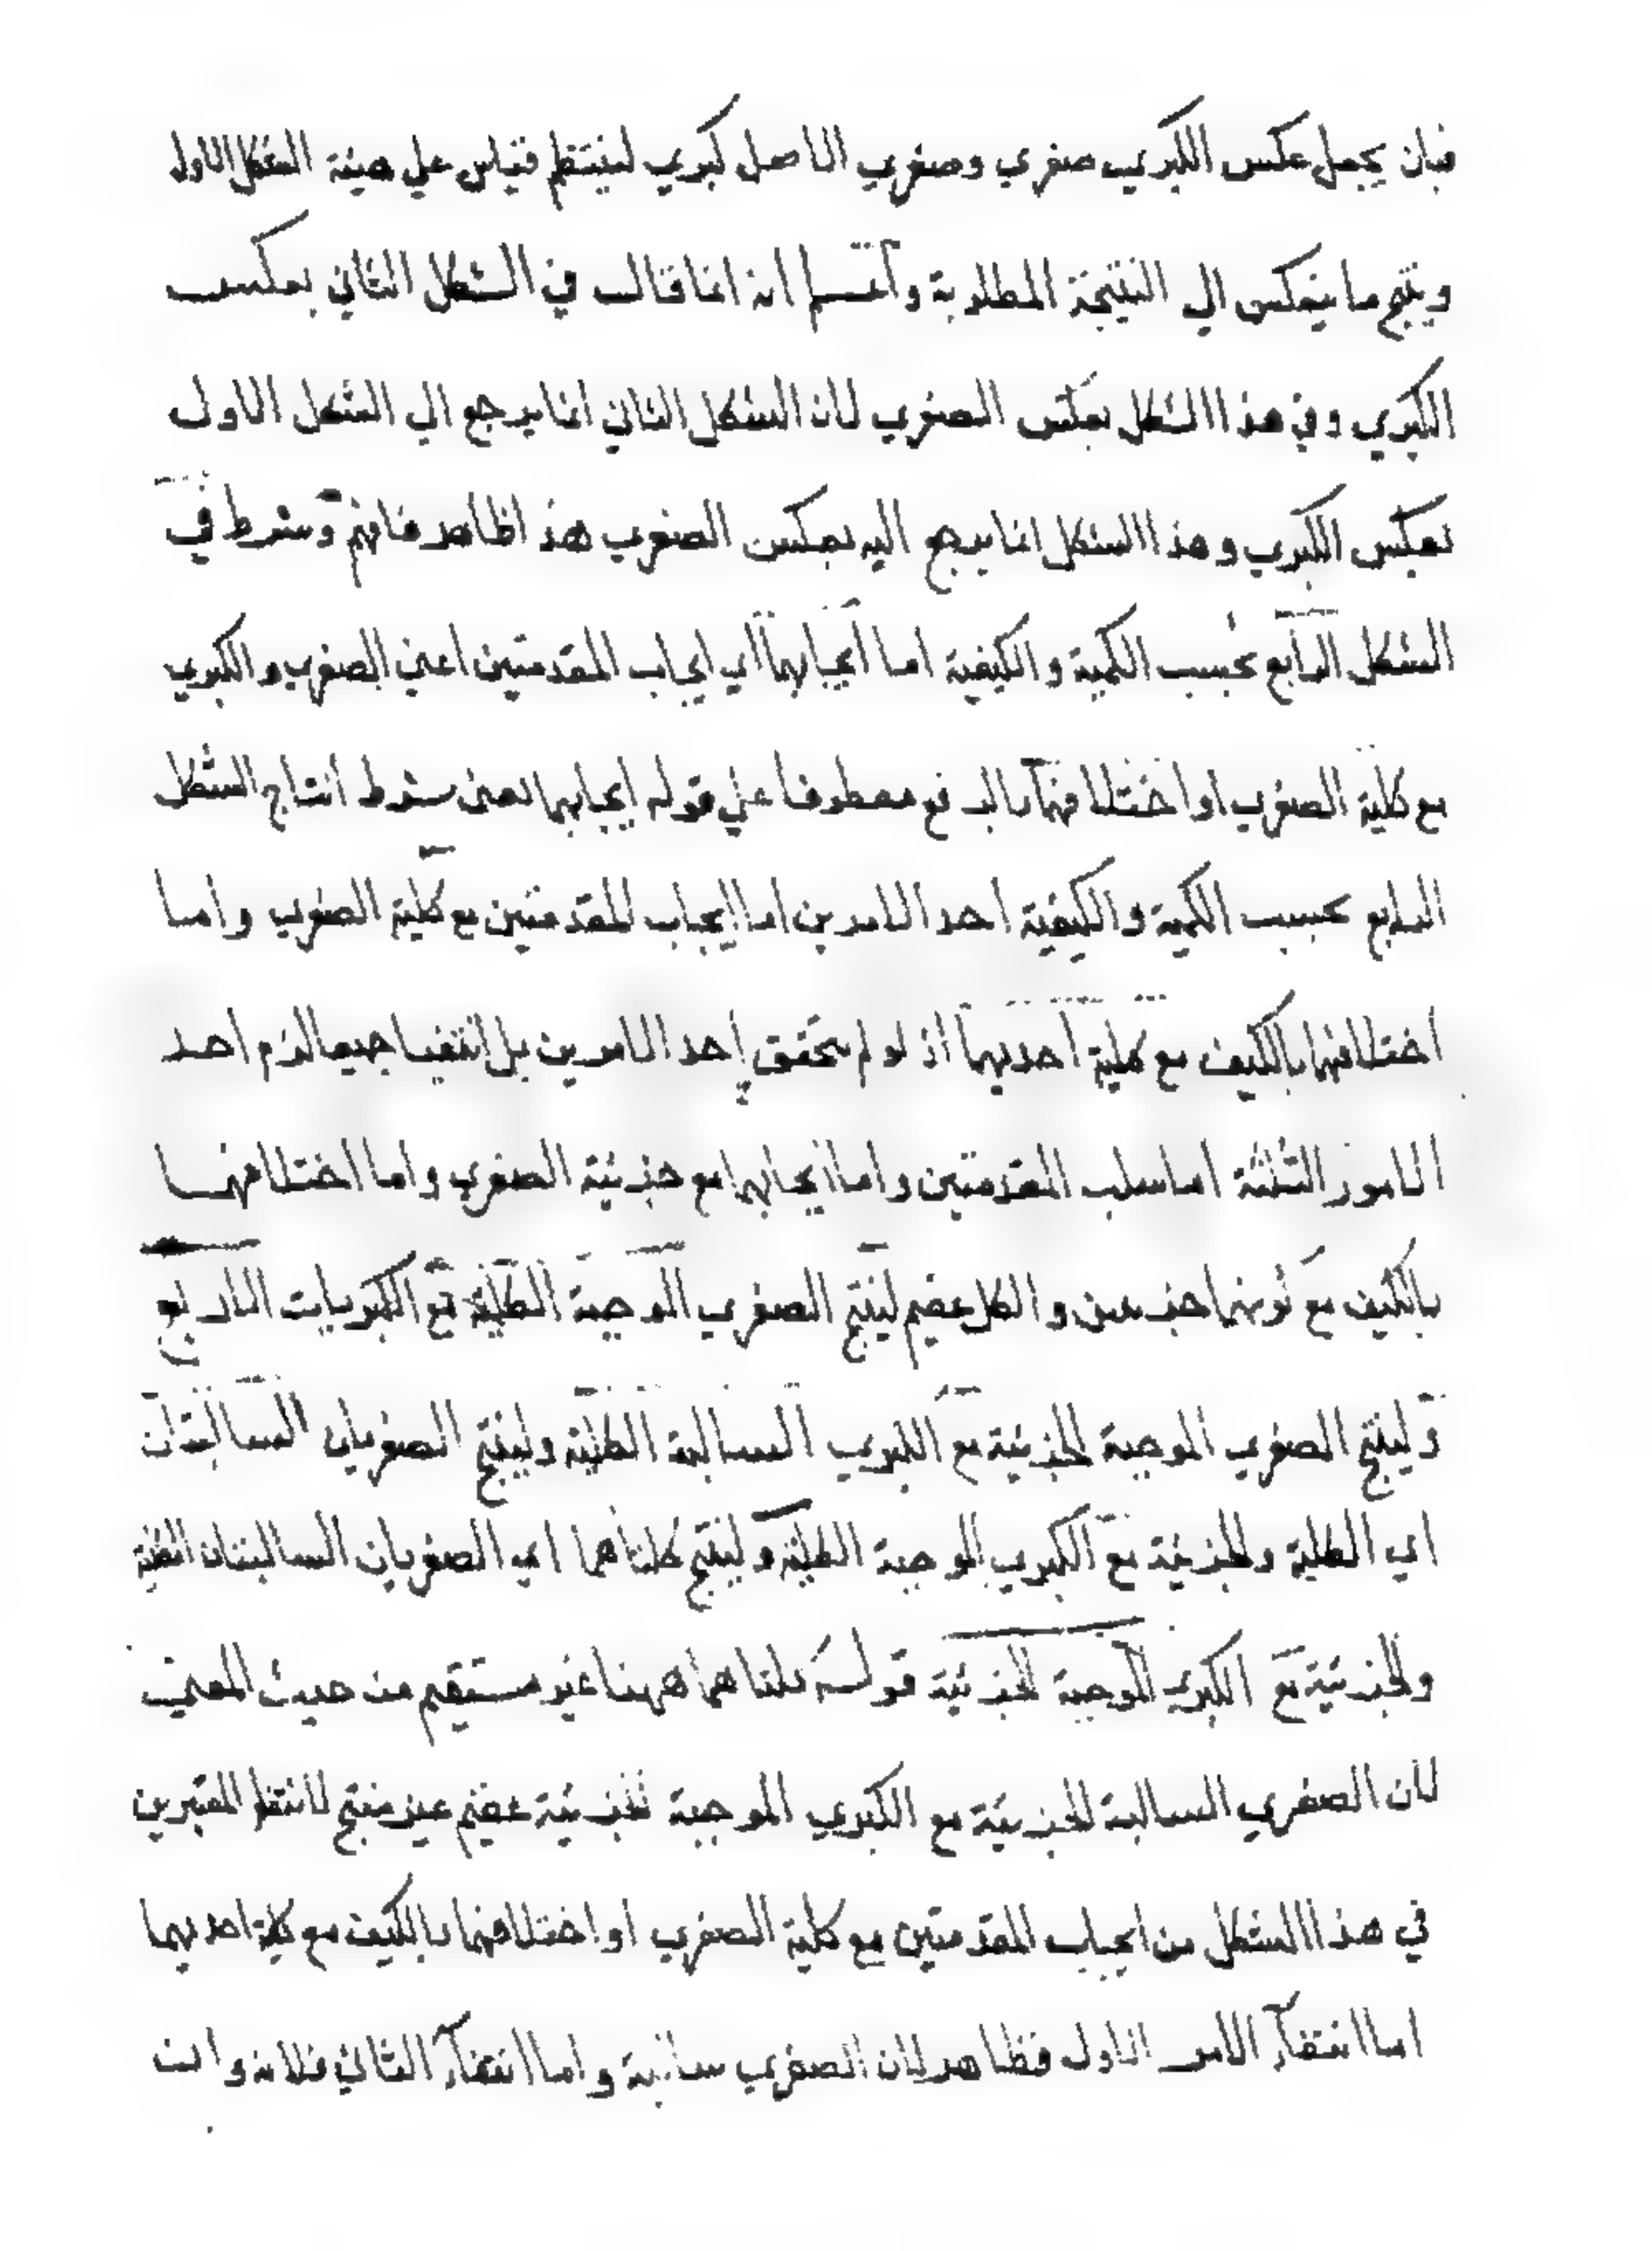 فبان يجعل عكس الكبري صغري وصغري الاصل كبري لينتظم قياس علي هيئة الشكل الاول
وينتج ما ينعكس الي النتيجة المطلوبة واعلم انه انما قال في الشكل الثاني بعكس
الكبري وفي هذا الشكل بعكس الصغري لان الشكل الثاني انما يرجع الي الشكل الاول
بعكس الكبري وهذا الشكل انما يرجع اليه بعكس الصغري هذا ظاهر فافهم وشرط في
الشكل الرابع بحسب الكمية والكيفية اما ايجابهما اي ايجاب المقدمتين اعني الصغري والكبري
مع كلية الصغري او اختلافهما بالرفع معطوفا علي قوله ايجابهما يعني شرط انتاج الشكل
الرابع بحسب الكمية والكيفية احد الامرين اما ايجاب المقدمتين مع كلية الصغري واما
اختلافهما بالكيف مع كلية احديهما اذ لو لم يتحقق احد الامرين بل انتفيا جميعا لزم احد
الامور الثلثة اما سلب المقدمتين واما ايجابهما مع جزئية الصغري واما اختلافهما
بالكيف مع كونهما جزءين والكل عقيم لينتج الصغري الموجبة الكلية مع الكبريات الاربع
ولينتج الصغري الموجبة الجزئية مع الكبري السالبة الكلية ولينتج الصغريان السالبتان
اي الكلية والجزئية مع الكبري الموجبة الكلية ولينتج كلتاهما اي الصغريان السالبتان الكلية
والجزئية مع الكبري الموجبة الجزئية قوله كلتاهما ههنا غير مستقيم من حيث المعني
لان الصغري السالبة الجزئية مع الكبري الموجبة الجزئية عقيم غير منتج لانتفا المعتبرين
في هذا الشكل من ايجاب المقدمتين مع كلية الصغري او اختلافهما بالكيف مع كلية احديهما
اما انتفآء الامر الاول فظاهر لان الصغري سالبة واما انتفآء الثاني فلانه وان